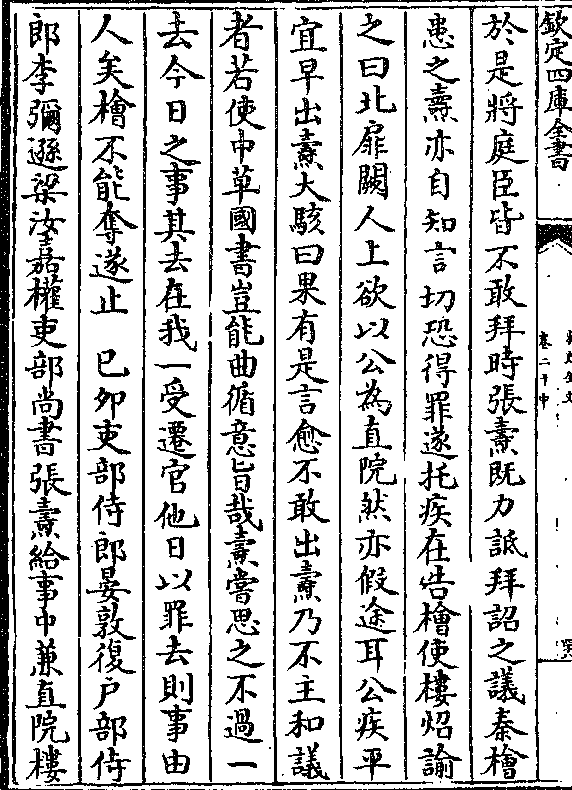 欽定四庫全書
於是將庭臣皆不敢拜時張燾既力詆拜詔之議秦檜
患之燾亦自知言切恐得罪遂托疾在告檜使樓炤諭
之曰北扉闕人上欲以公為直院然亦假途耳公疾平
宜早出燾大駭曰果有是言愈不敢出燾乃不主和議
者若使中草國書豈能曲循意旨哉燾嘗思之不過一
去今日之事其去在我一受遷官他日以罪去則事由
人矣檜不能奪遂止　己夘吏部侍郎晏敦復户部侍
郎李彌遜梁汝嘉權吏部尚書張燾給事中兼直院樓